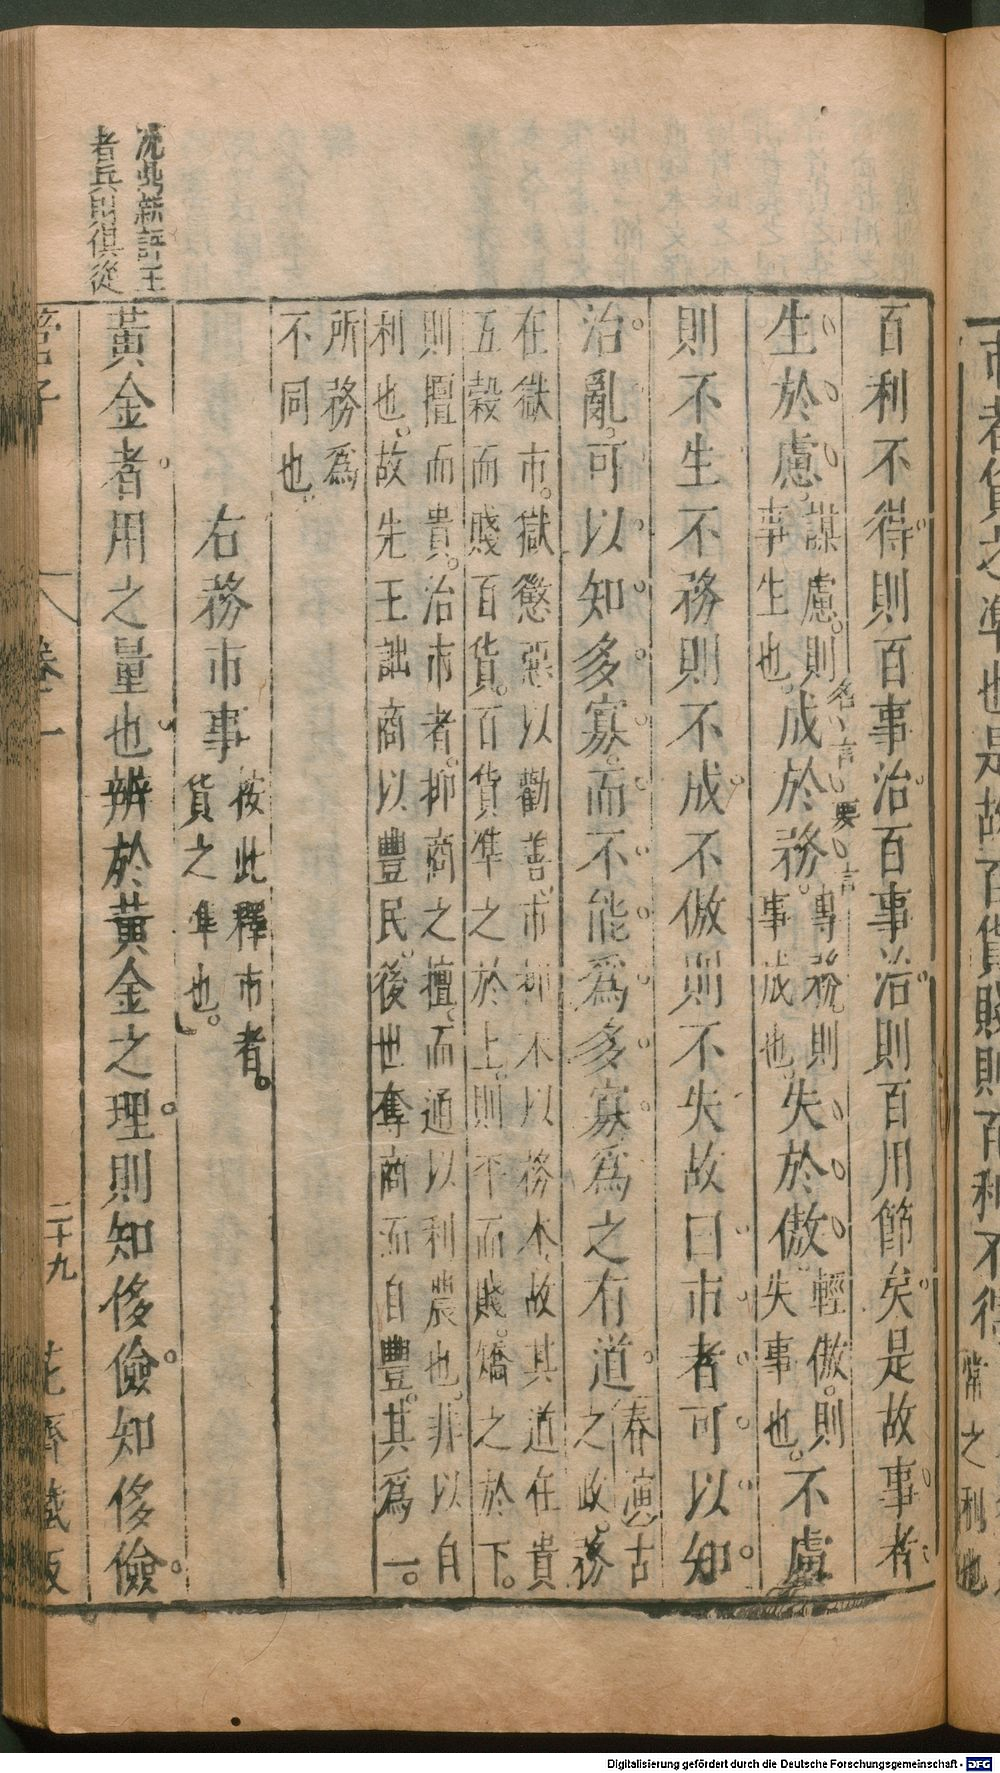 市者貨之準也是故百貨賤則百利不得常之利也
百利不得則百事治百事治則百用節矣是故事者
生於慮謀慮則事生也成於務專務則事成也失於傲輕傲則失事也不慮
名言要言
則不生不務則不成不傲則不失故曰市者可以知
治亂可以知多寡而不能爲多寡爲之有道春演古之政務
在獄市獄懲惡以勸善市抑末以務本故其道在貴
五穀而賤百貨百貨準之於上則不而賤矯之於下
則擅而貴治市者抑商之擅而通以利農也非以自
利也故先王詘商以豐民後世奪商而自豐其爲一
所務爲
不同也
右務市事按此釋市者貨之準也
沈鼎新評王
者兵則俱從
黃金者用之量也辨於黃金之理則知侈儉知侈儉
管子 卷一 二十九 花齋藏版
Digitalisierung gefördert durch die Deutsche Forschungsgemeinschaft - DFG